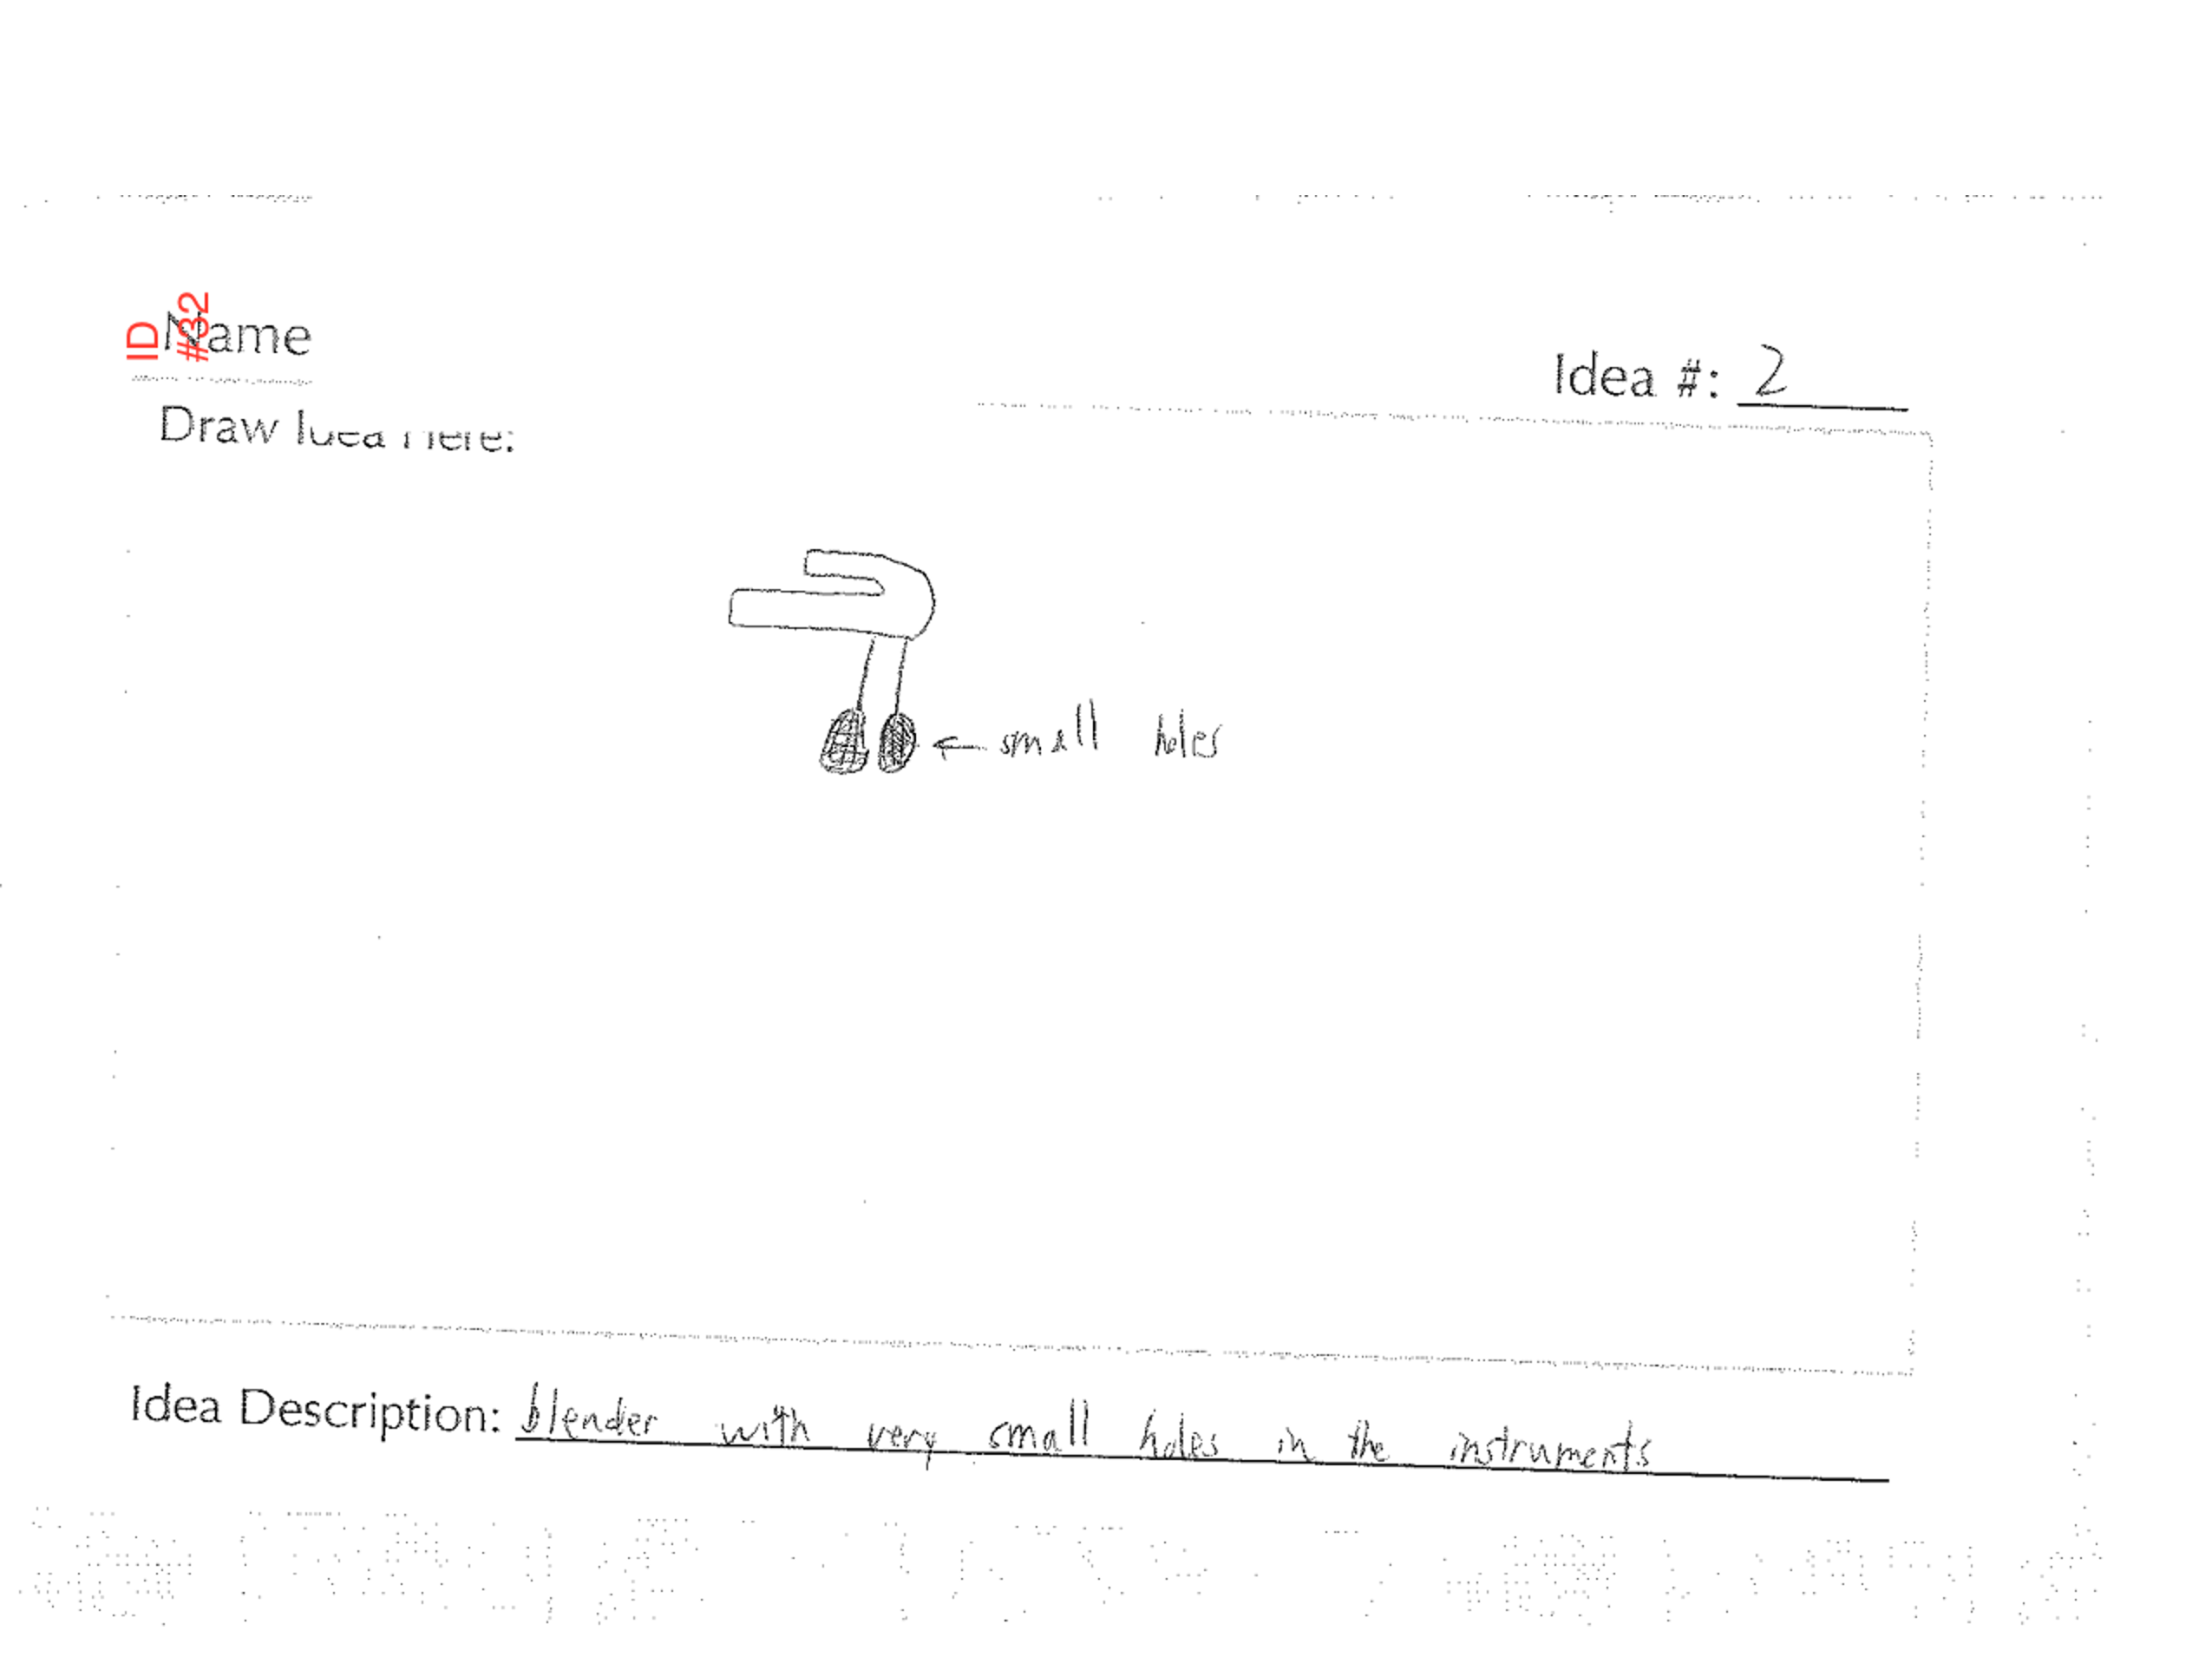 ID
#32
Name
Idea #: 2
Draw Idea Here:
← small holes
Idea Description: blender with very small holes in the instruments